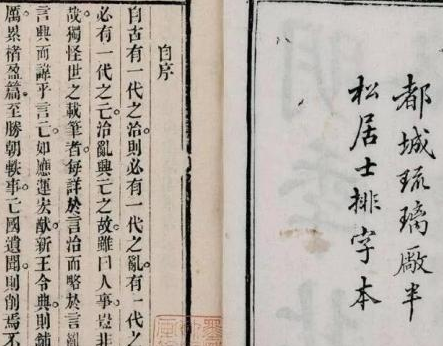 都城琉璃廠半
松居士排字本
自序
自古有一代之治則必有一代之亂。有一代之
必有一代之亡。治亂興亡之故。雖曰人事。豈非
哉。獨怪世之載筆者。每詳於言治而略於言亂
言興而諱乎言亡。如應運炎猷新王令典則鋪
厲累楮盈篇。至勝朝軼事。亡國遺聞。則削焉不